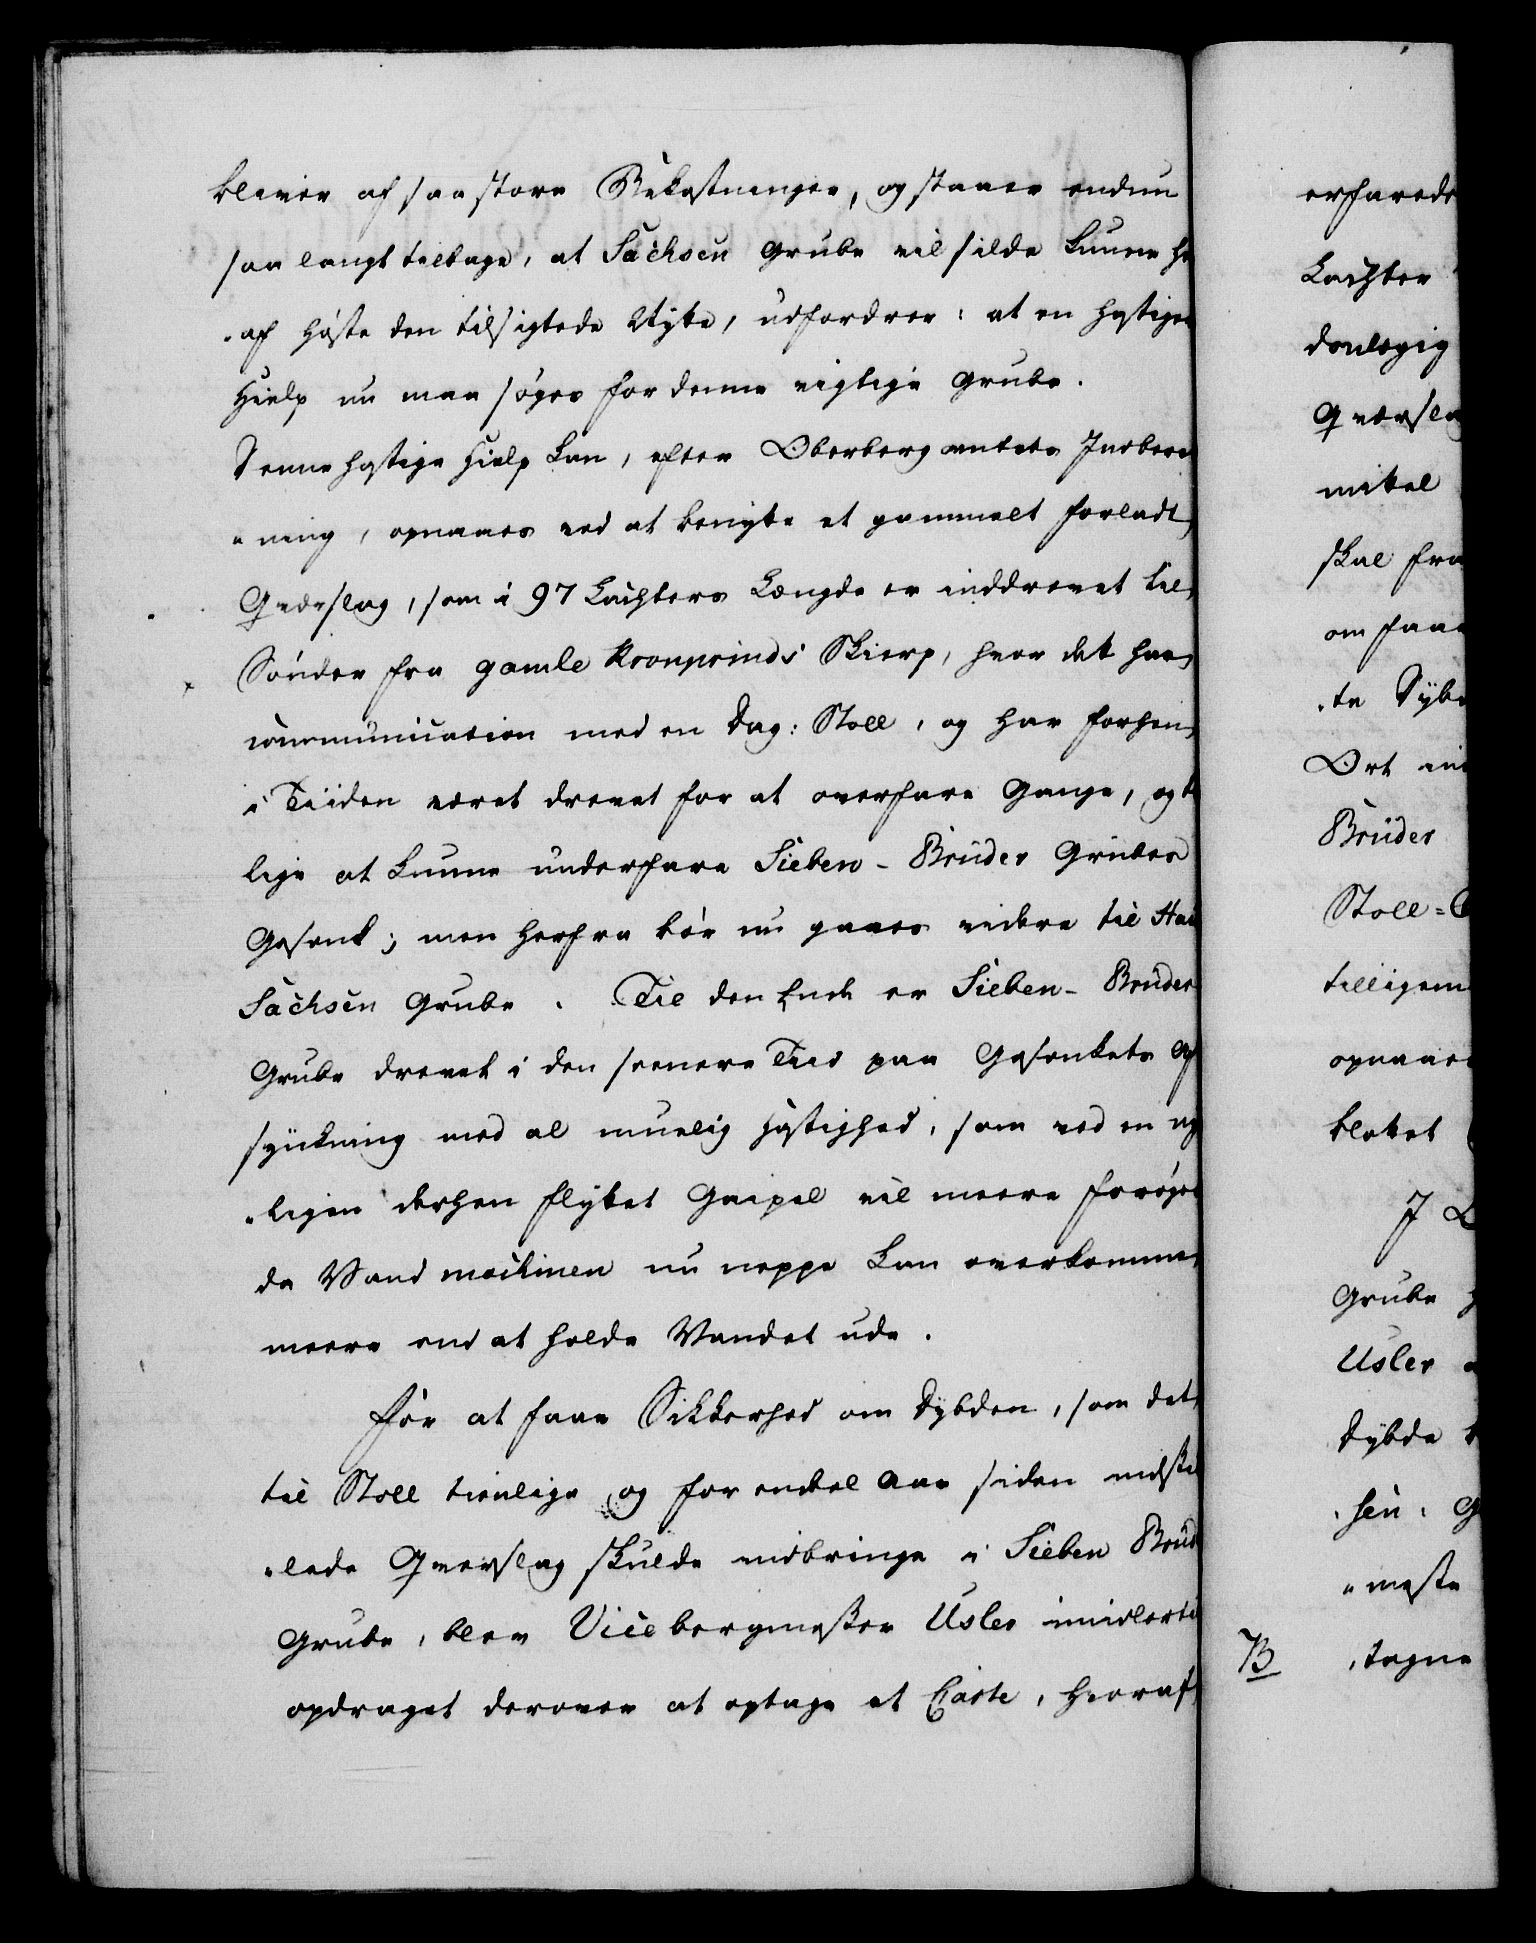 bliver af saa store Bekostninger, og staaer endnu
saa langt tilbage, at Sachsen Grube vil silde kunne h
„af høste den tilsigtede Nytte, udfordrer: at en hastig
Hielp nu maa søges for denne vigtige Grube.
Denne hastige Hielp kan, efter Oberbergamtets Indberet
„ning, opnaaes ved at benytte et gammelt forladt
Qværslag, som i 97 Lachters Længde er inddrevet til
Sönden fra gamle Kronprinds Skierp, hvor det har
communication med en Dag: Stoll, og har forhen
i Tiiden været drevet for at overfare Gange, og t
lige at kunne underfare Sieben-Brüder Grubes
Gesenk; men herfra bör nu gaaes videre til Ha
Sachsen Grube. Til den Ende er Sieben-Brüder
Grube drevet i den seenere Tiid paa Gesenkets Af
synkning med al muelig Hastighed, som ved en ny
„ligen derhen flyttet Gaipel vil meere forøges
da Vandmachinen nu neppe kan overkomme
meere end at holde Vandet ude.
For at faae Sikkerhed om Dybden, som det
til Stoll tienlige og for endeel Aar siden
„lede Qverslag skulde indbringe i Sieben Brüd
Grube, blev Vicebergmester Usler imidlerti
opdraget derover at optage et Carte, hvoraf
erfarede
Lachter
donlægig
Qværslag
mitel
skal fra
om faae
„te Dybe
Ort in
Brüder
Stoll=
tilligem
opnaae
blottet
I L
Grube
Usler
Dybde
„sen: G
„meste
B „tagne